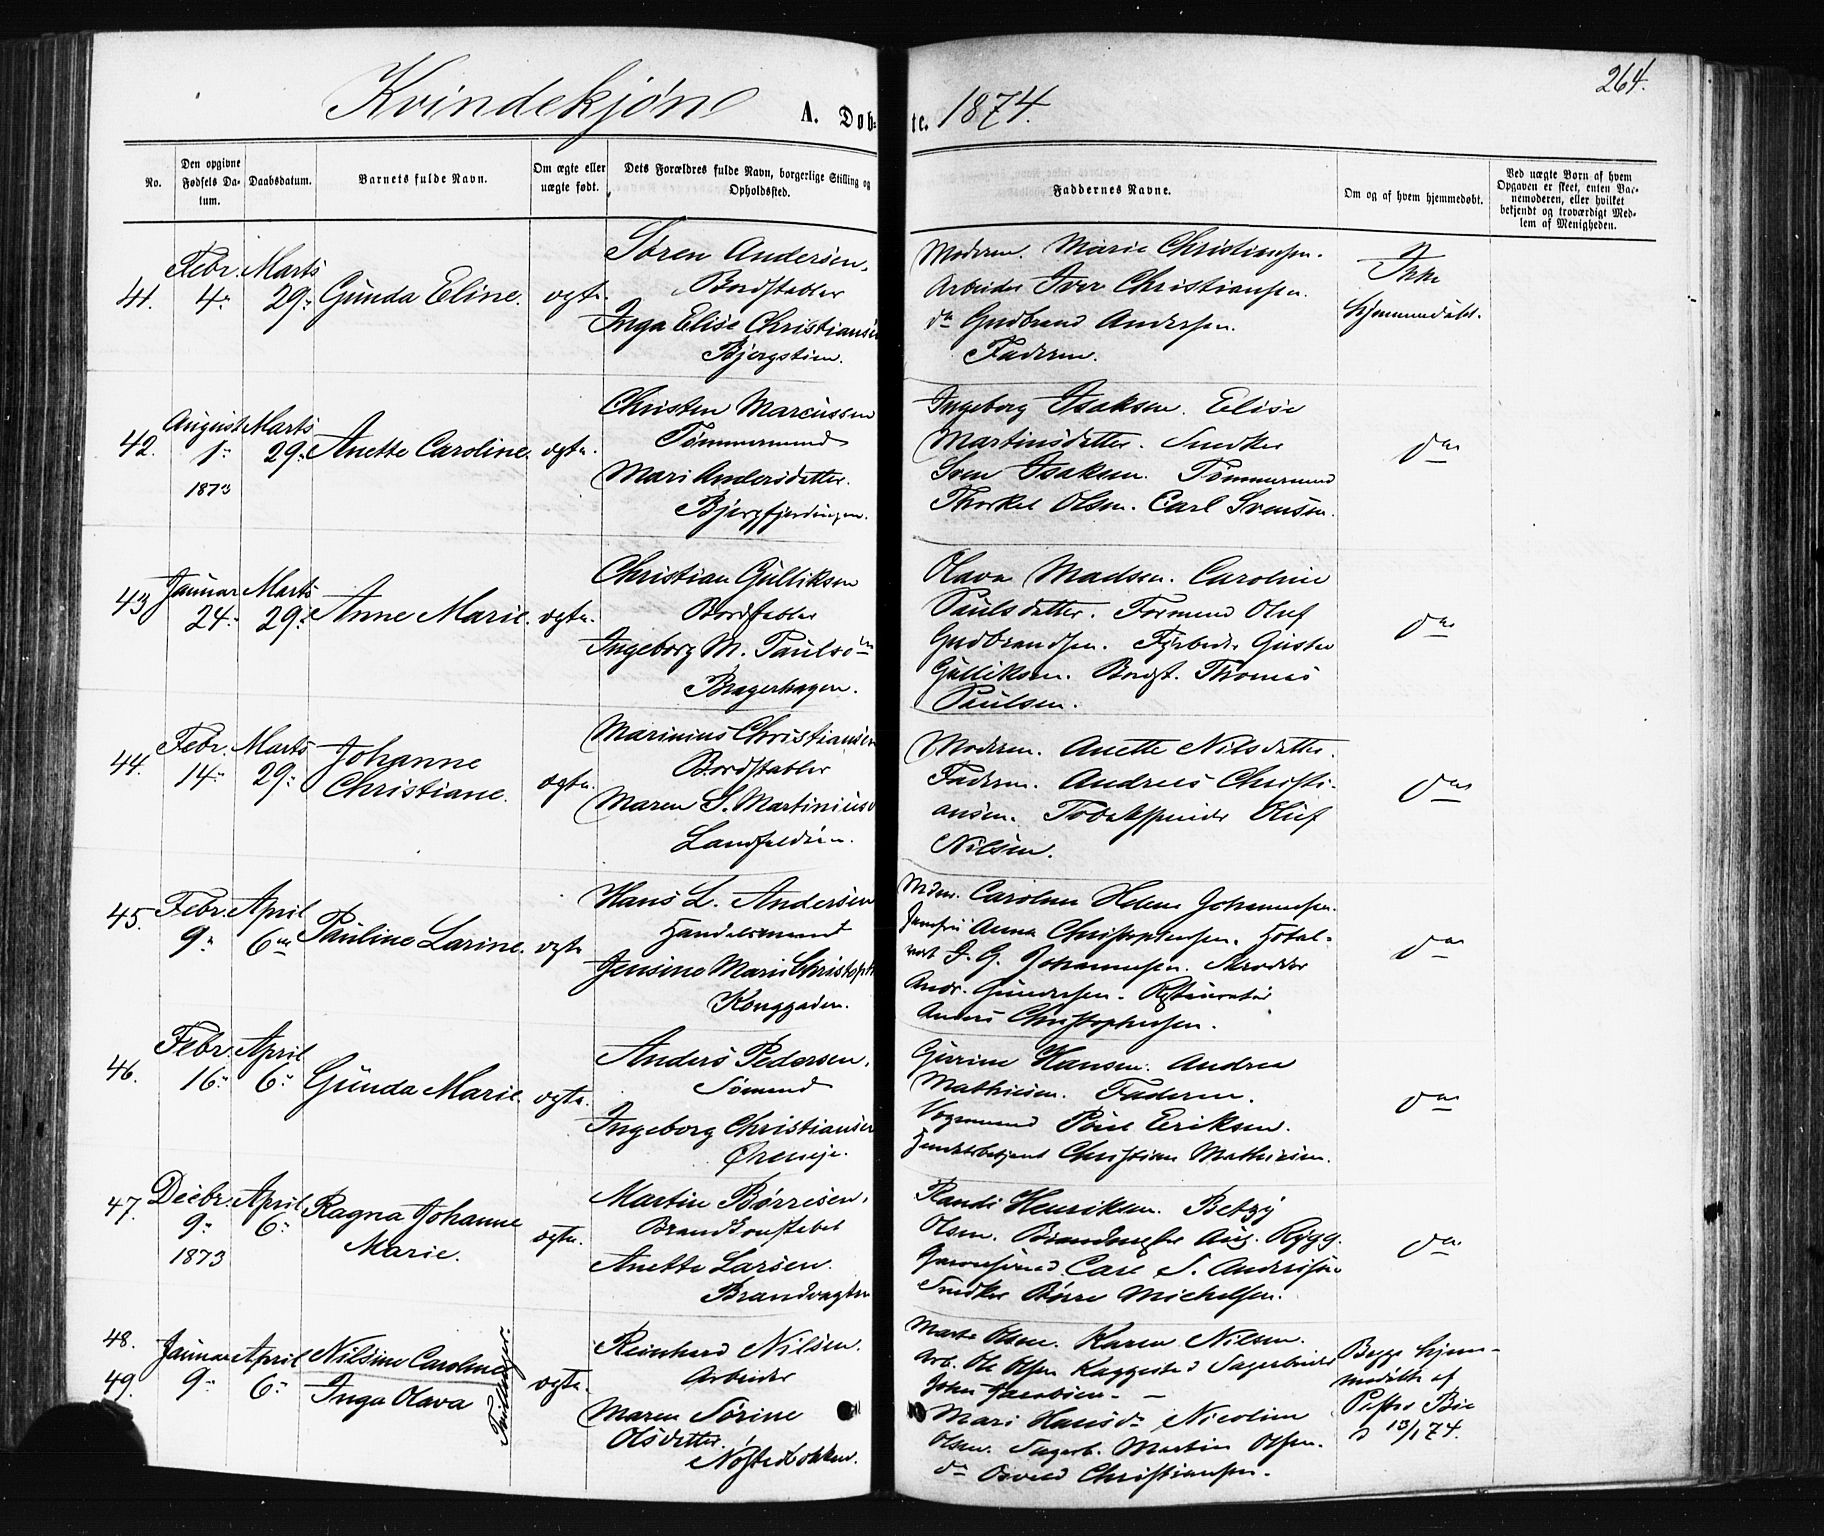 264.
Kvindekjøn A. Døb-te. 1874.
No.
Den opgivne Fødsels Da-tum.
Daabsdatum.
Barnets fulde Navn.
Om ægte eller uægte født.
Dets Forældres fulde Navn, borgerlige Stilling og Opholdssted.
Faddernes Navne.
Om og af hvem hjemmedøbt.
Ved uægte Børn af hvem Opgaven er skeet, enten Bar-nemoderen, eller hvilket bekjendt og troværdigt Med-lem af Menigheden.
41.
Febr. 4-
Marts 29-
Gunda Eline.
ægte.
Søren Andersen.
Bordstabler
Inga Elise Christianse
Bjergstien.
Moderen. Marie Christiansen.
Arbeider Iver Christiansen.
do Gudbrand Andersen.
Faderen.
Ikke
hjemmedøbt.
42.
August 1-
1873
Marts 29-
Anette Caroline.
ægte.
Christen Marcussen
Tømmermand
Mari Andersdatter.
Bjergfjerdingen.
Ingeborg Isaksen. Elise
Martinsdatter. Snedker
Sven Isaksen. Tømmermand
Thorkel Olsen. Carl Svensen.
do
43
Januar 24-
Marts 29-
Anne Marie.
ægte.
Christian Gulliksen
Bordstabler
Ingeborg M. Pauls
Bragerhagen.
Olava Madsen. Caroline
Paulsdatter. Formand Oluf
Gudbrandsen. Gustav
Gulliksen. Bordst. Thomas
Paulsen.
do
44.
Febr. 14-
Marts 29-
Johanne
Christiane.
ægte.
Marinius Christiansen
Bordstabler
Maren S. Martinius
Landfaldøen.
Moderen. Anette Nilsdatter.
Faderen. Andreas Christi-
ansen. Tobakspinder Oluf
Nilsen.
do
45.
Febr. 9-
April 6te
Pauline Larine.
ægte
Hans L. Andersen
Handelsmand
Jensine Marie Christoph
Konggaden.
Mdm. Caroline Helene Johannesen.
Jomfru Anna Christophersen. Hotel-
vert J. G. Johannesen. Skrædder
Andr. Gundersen. Restauratør
Anders Christophersen.
do
46.
Febr. 16-
April 6-
Gunda Marie.
ægte.
Anders Pedersen.
Sømand
Ingeborg Christiansen
Øreneje.
Gurine Hansen. Andrea
Mathisen. Faderen.
Vognmand Paul Eriksen.
Christian Mathisen.
do
47.
Decbr. 9-
1873
April 6-
Ragna Johanne
Marie.
ægte.
Martin Børresen.
Brandkonstabel
Anette Larsen.
Brandvagten
Randi Henriksen. Betzy
Olsen. Aug. Rygg.
Carl S. Andersen
Snedker Børre Michelsen.
do
48.
49.
Januar 9-
April 6-
Nilsine Caroline
Inga Olava
Tvillinger.
ægte.
Reinhard Nilsen.
Arbeider
Maren Sørine
Olsdatter.
Nøstedbakken.
Marte Olsen. Karen Nilsen.
Arb. Ole Olsen Kaggestad Sagarbeider
John Jacobsen. —
Mari Hansdr. Nicoline
Olsen. Sagarb. Martin Olsen.
do Christiansen.
Begge hjem-
medøbte af
13/1 74.